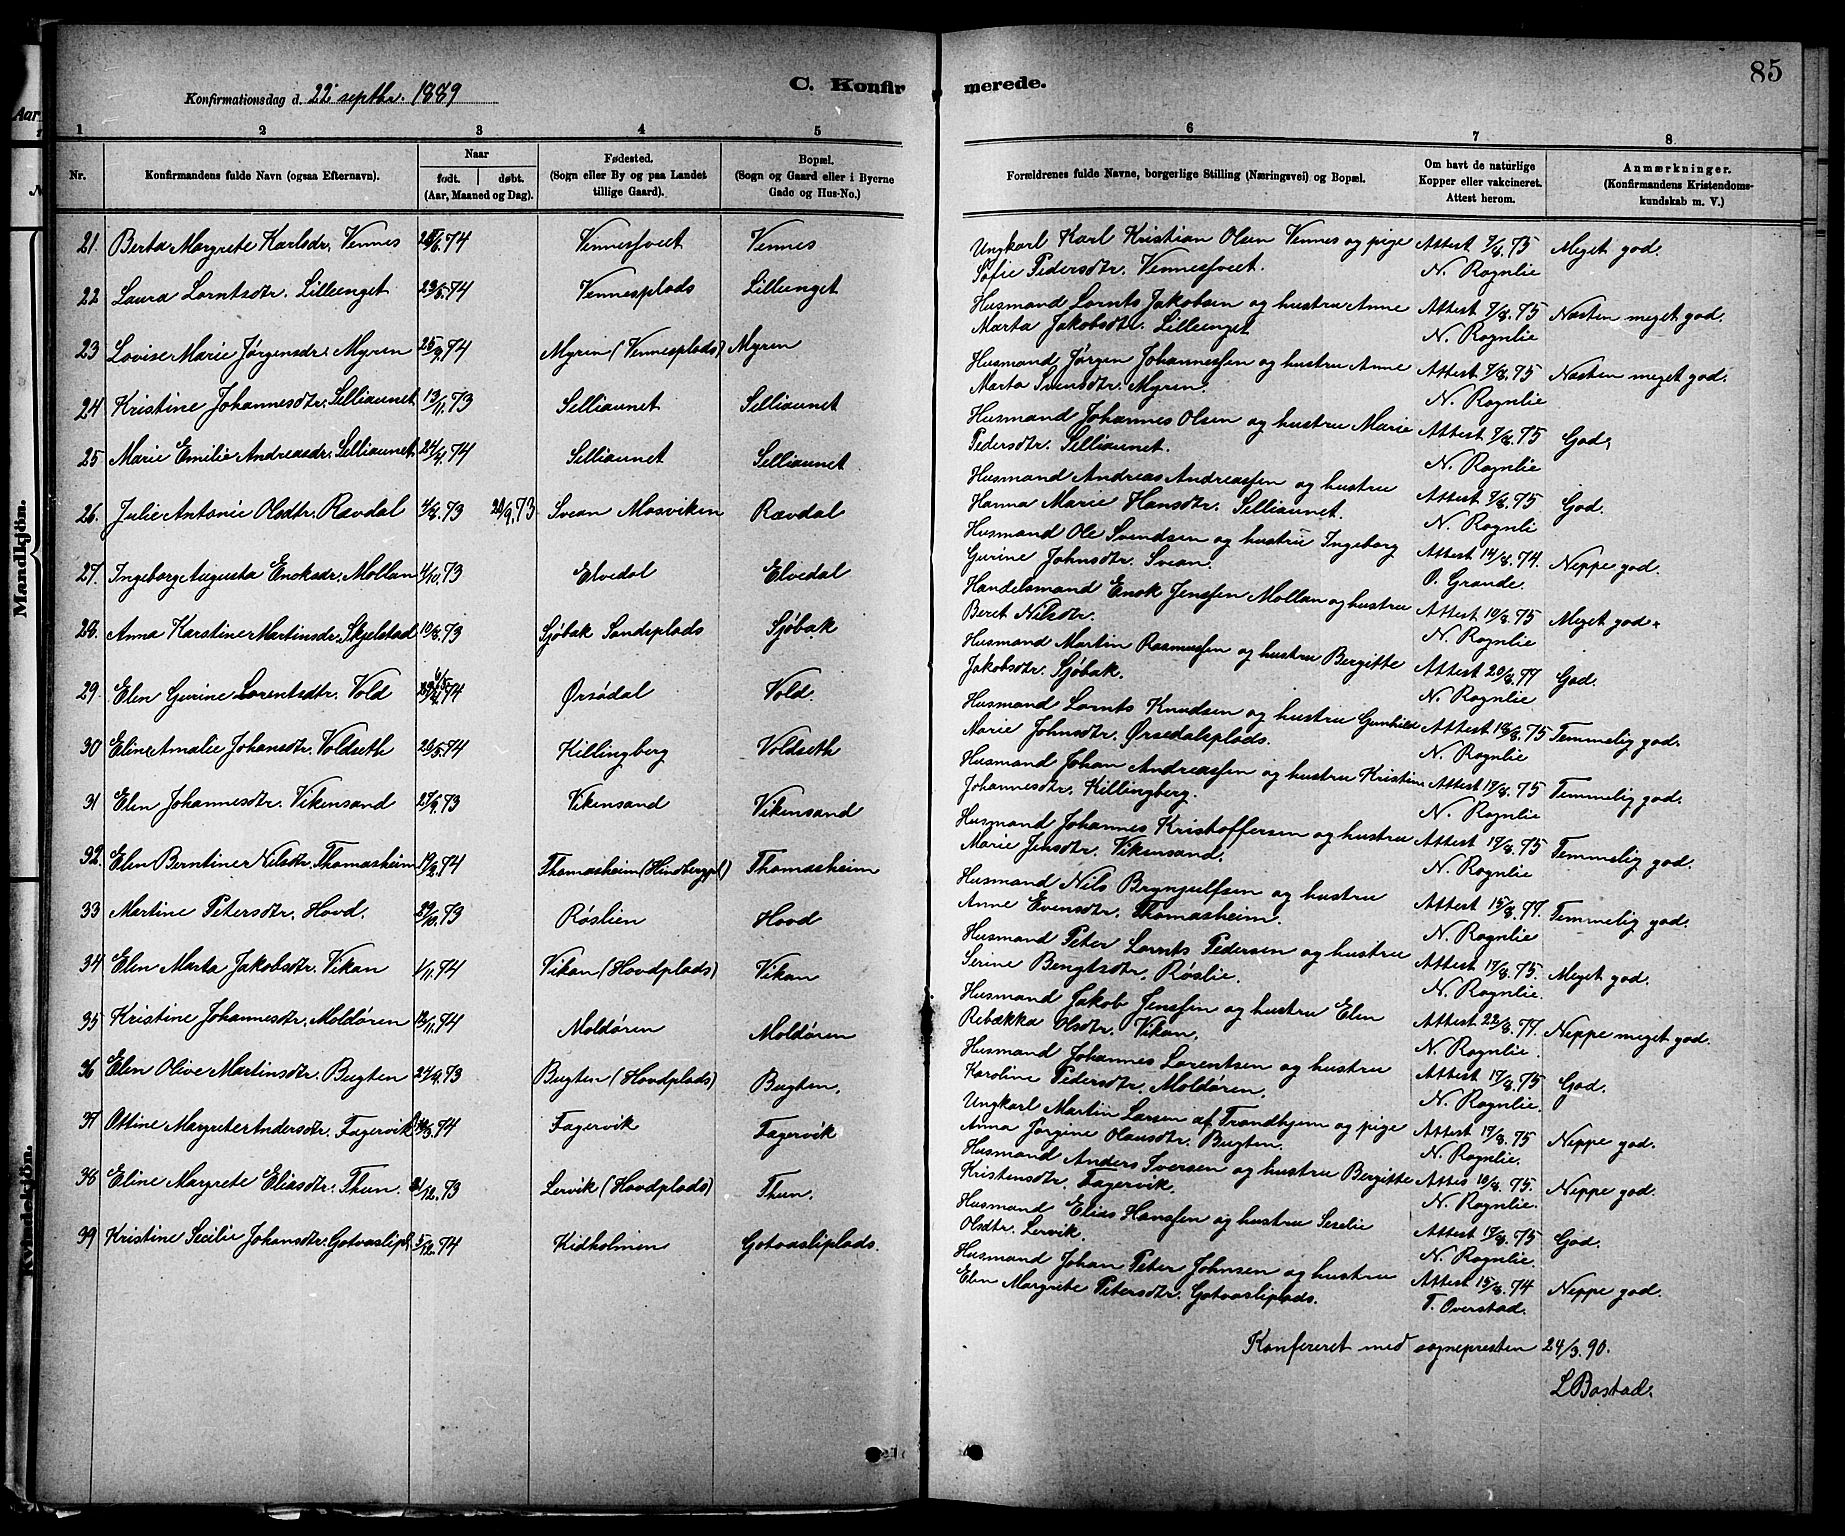 85
Konfirmationsdag d. 22 septbr. 1889
C. Konfirmerede.
1 2 3 4 5 6 7 8.
Nr.
Konfirmandens fulde Navn (ogsaa Efternavn).
Naar
født. døbt.
(Aar, Maaned og Dag).
Fødested.
(Sogn eller By og paa Landet
tillige Gaard).
Bopæl.
(Sogn og Gaard eller i Byerne
Gade og Hus-No.)
Forældrenes fulde Navne, borgerlige Stilling (Næringsvei) og Bopæl.
Om havt de naturlige
Kopper eller vakcineret.
Attest herom.
Anmærkninger.
(Konfirmandens Kristendoms-
kundskab m. V.)
Mandkjön.
Kvindekjön.
21. Berta Margrete Karlsdr. Vennes 74 Vennesfveet Vennes
Ungkarl Karl Kristian Olsen Vennes og pige Attest 7/8.75 Meget god.
Sofie Pedersdtr. Vennesfveet. N. Rognlie
22 Laura Lorntsdtr. Lillenget 23/5.74 Vennesplads Lillenget
Husmand Lornts Jakobsen og hustru Anne Attest 7/8.75 Næsten meget god.
Marta Jakobsdtr. Lillenget N. Rognlie
23 Lovise Marie Jørgensdr. Myren 74 Myren (Vennesplads) Myren
Husmand Jørgen Johannessen og hustru Anne Attest 7/8.75 Næsten meget god.
Marta Svensdtr. Myren. N. Rognlie
24 Kristine Johannesdtr. Selliaunet 13/11.73 Selliaunet Selliaunet
Husmand Johannes Olsen og hustru Marie Attest 7/8.75 God.
Pedersdtr. Selliaunet. N. Rognlie
25 Marie Emilie Andreasdr. Selliaunet 24/4.74 Selliaunet Selliaunet
Husmand Andreas Andreassen og hustru Attest 7/8.75 God.
Hanna Marie Hansdtr. Selliaunet. N. Rognli
26. Julie Antonie Olsdtr. Rævdal 4/8.73 20/9.73 Svean Mosviken Rævdal
Husmand Ole Svendsen og hustru Ingeborg Attest 14/8.74. Neppe god.
Gurine Johnsdtr. Svean. O. Grande.
27. Ingeborg Augusta Enoksdr. Mollan 4/10.73 Elvedal Elvedal
Handelsmand Enok Jenssen Mollan og hustru Attest 10/8.75 Meget god.
Beret Nilsdtr. N. Rognlie
28. Anna Karstine Martinsdr. Skjelstad 10/8.73 Sjøbak Sandsplads Sjøbak
Husmand Martin Rasmussen og hustru Bergitte Attest 20/8.77 God.
Jakobsdtr. Sjøbak. N. Rognlie
29. Elen Gurine Lorentsdtr. Vold 74 Ørsødal Vold.
Husmand Lornts Knudsen og hustru Gunhild Attest 18/8.75 Temmelig god.
Marie Johnsdtr. Ørsedalsplads. N. Rognlie
30 Eline Amalie Johansdtr. Voldseth 20/5.74 Killingberg Voldseth
Husmand Johan Andreassen og hustru Kristine Attest 17/8.75 Temmelig god.
Johannesdtr. Killingberg. N. Rognlie
31 Elen Johannesdtr. Vikensand 27/9.73 Vikensand Vikensand
Husmand Johannes Kristoffersen og hustru Attest 17/8.75 Temmelig god.
Marie Jensdtr. Vikensand. N. Rognlie
32. Elen Berntine Nilsdtr. Thomasheim 19/2.74 Thomasheim (Hindbergpl) Thomasheim
Husmand Nils Bryngulfsen og hustru Attest 15/8.77. Temmelig god.
Anne Evensdtr. Thomasheim. N. Rognlie
33 Martine Petersdtr. Hovd. 29/10.73 Røslien Hovd
Husmand Peter Lornts Pedersen og hustru Attest 17/8.75. Meget god.
Serine Bengtsdtr. Røslie. N. Rognlie.
34 Elen Marta Jakobsdtr. Vikan 1/1.74 Vikan (Hovdplads) Vikan
Husmand Jakob Jenssen og hustru Elen Attest 22/8.77. Neppe meget god.
Rebækka Olsdtr. Vikan. N. Rognlie.
35 Kristine Johannesdtr. Moldøren 74 Moldøren Moldøren
Husmand Johannes Lorentsen og hustru Attest 17/8.75 God.
Karoline Pedersdtr. Moldøren. N. Rognlie.
36 Elen Olive Martinsdtr. Bugten 24/9.73 Bugten (Hovdplads) Bugten.
Ungkarl Martin Larsen af Trondhjem og pige Attest 17/8.75 Neppe god.
Anna Jørgine Olausdtr. Bugten. N. Rognlie.
37 Ottine Margrete Andersdtr. Fagervik 74 Fagervik Fagervik
Husmand Anders Iversen og hustru Bergitte Attes 18/8.75. Neppe god.
Kristensdtr. Fagervik. N. Rognlie.
38 Eline Margrete Eliasdtr. Thun. 21/12.73 Lervik (Hovdplads) Thun.
Husmand Elias Hanssen og hustru Seselie Attest 17/8.75 God.
Olsdtr. Lervik. N. Rognlie.
39 Kristine Secilie Johansdtr. Gotvaslipl. 5/12.74 Kidholmen Gotvasliplads.
Husmand Johan Peter Johnsen og hustru Attest 15/8.74 Neppe god.
Elen Margrete Petersdtr. Gotvasliplads. T. Overstad.
Konfereret med sognepresten 24/3.90.
L Bostad.